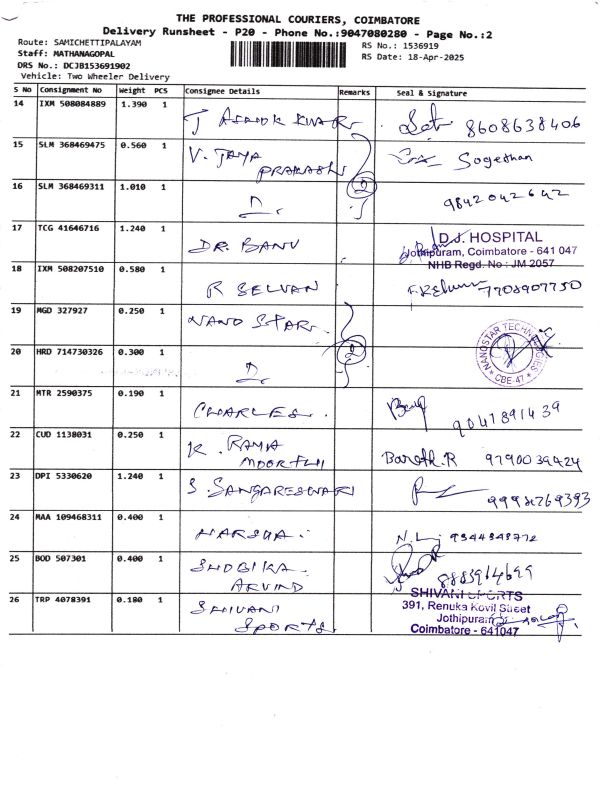 THE PROFESSIONAL COURIERS, COIMBATORE
Delivery Runsheet - P20 - Phone No.:9047080280 - Page No.:2
Route: SAMICHETTIPALAYAM
Staff: MATHANAGOPAL
DRS No.: DCJB153691902
Vehicle: Two Wheeler Delivery
RS No.: 1536919
RS Date: 18-Apr-2025
S No Consignment No Weight PCS Consignee Details Remarks Seal & Signature
14 IXM 508084889 1.390 1
J ASHOK KUMAR 8608638406
15 SLM 368469475 0.560 1
V. JAYA
PRAKASH Sogeshan
16 SLM 368469311 1.010 1 2
D. 9842042642
17 TCG 41646716 1.240 1
DR. BANU
D.J. HOSPITAL
Jothipuram, Coimbatore - 641 047
NHB Regd. No : JM 2057
18 IXM 508207510 0.580 1
R SELVAN 7708907750
19 MGD 327927 0.250 1
NANO STAR.
NANOSTAR TECHNOLOGIES
* CBE-47 *
20 HRD 714730326 0.300 1 2
D.
21 MTR 2590375 0.190 1
CHARLES. 9041891439
22 CUD 1138031 0.250 1
K. RAMA
MOORTHI Barath.R 9790039424
23 DPI 5330620 1.240 1
S. SANGARESWARI
24 MAA 109468311 0.400 1
HARSHA. 9344343772
25 BOD 507301 0.400 1
SHOBIKA
ARVIND 8883964699
26 TRP 4078391 0.180 1
SHIVANI
SPORTS.
SHIVANI SPORTS
391, Renuka Kovil Street
Jothipuram
Coimbatore - 641047